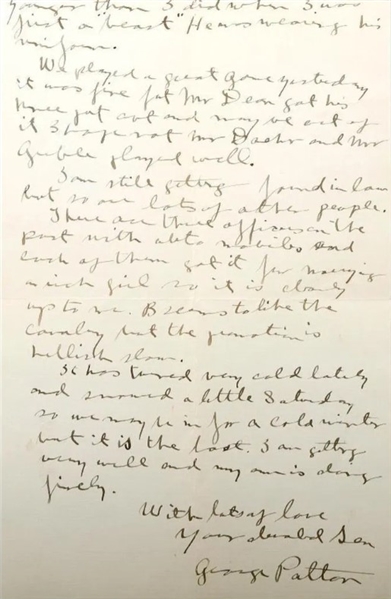 younger than I did when I was
just a "beast" He was wearing his
uniform.
We played a great game yesterday
it was fine but Mr Dean got his
knee put out and may be out of
it I hope not Mr Dashr and Mr
Gruble played well.
I am still getting found in law
but so are lots of other people.
There are three officers in the
post with automobiles and
each of them got it for marrying
a rich girl so it is clearly
up to me. B seems to like the
cavalry but the promotion is
hellish slow.
It has turned very cold lately
and snowed a little Saturday
so we may be in for a cold winter
but it is the last. I am getting
very well and my arm is doing
finely.
With lots of love
Your devoted Son
George Patton